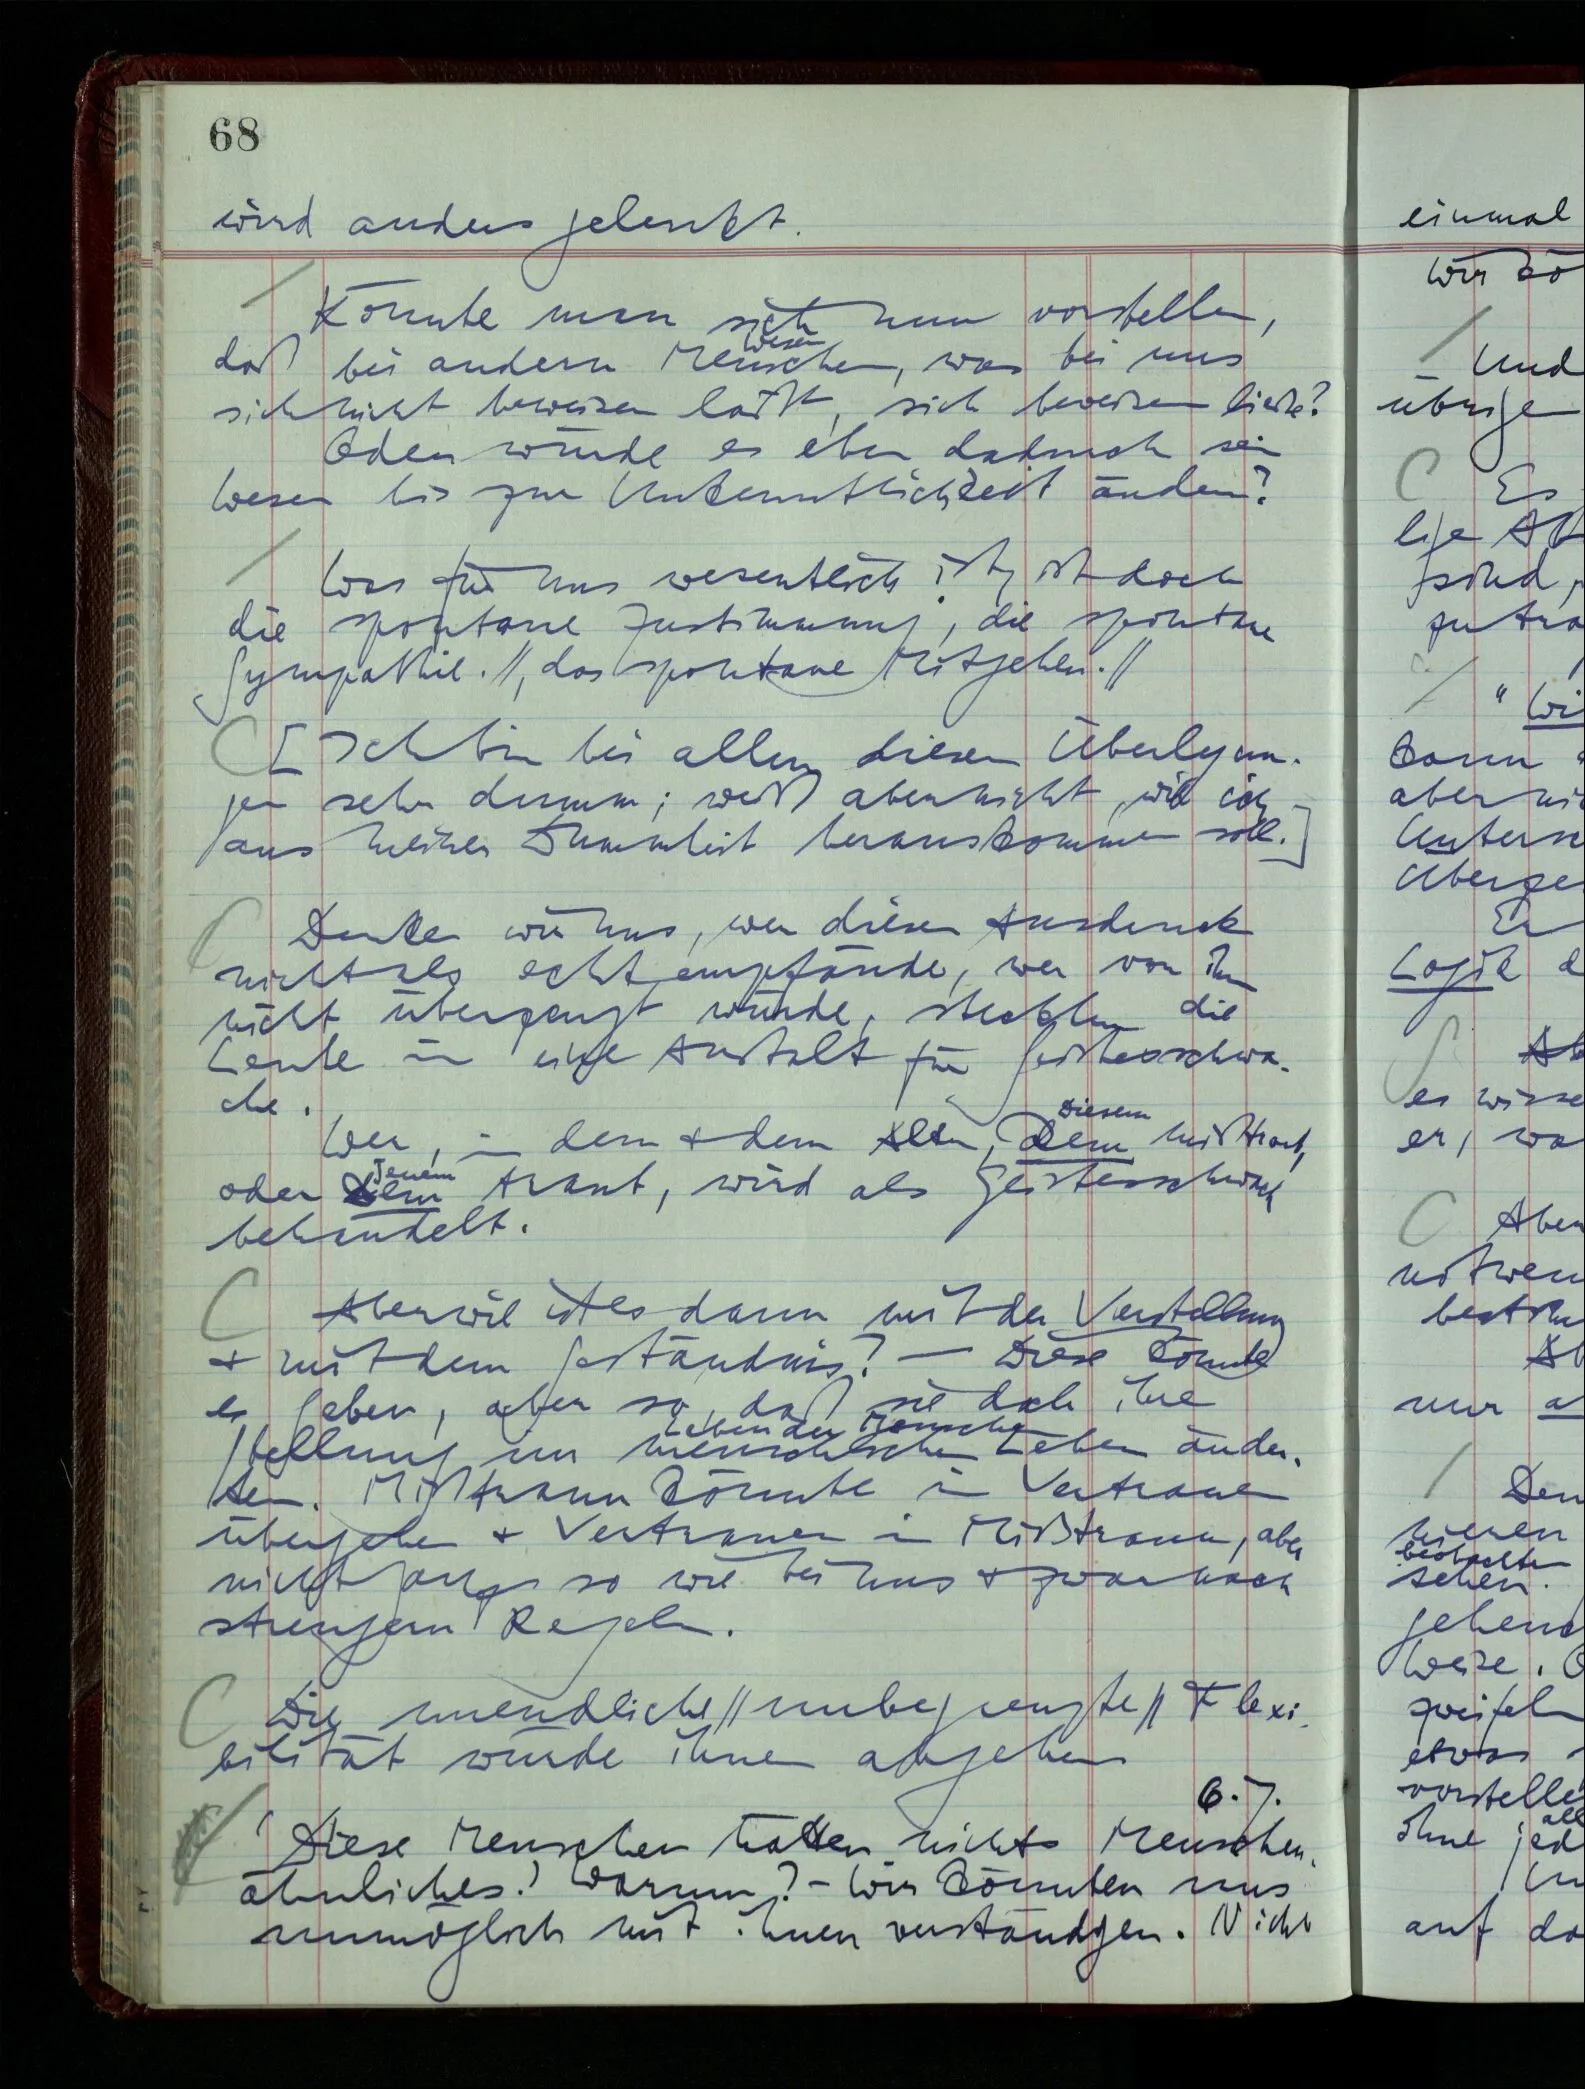 68
wird anders gelenkt.
Könnte man sich nun vorstellen,
wesen
daß bei andern Menschen, was bei uns
sich nicht beweisen läßt, sich beweisen ließe?
Oder würde es eben dadurch sein
Wesen bis zur Unkenntlichkeit ändern?
Was für uns wesentlich ist, ist doch
die spontane Zustimmung, die spontane
Sympathie. //, das spontane Mitgehen. //
[Ich bin bei allen diesen Überlegun-
gen sehr dumm; weiß aber nicht, wie ich
aus meiner Dummheit herauskommen soll.]
Denke wir uns, wer diesen Ausdruck
nicht als echt empfände, wer von ihm
nicht überzeugt würde, steckten die
Leute in eine Anstalt für Geistesschwa-
che.
diesem
Wer, in dem & dem Alter, dem mißtraut,
jenem
oder dem traut, wird als geistesschwach
behandelt.
Aber wie ist es dann mit der Verstellung
& mit dem Geständnis? — Diese könnte
es geben, aber so, daß sie doch ihre
Leben der Menschen
Stellung im menschlichen Leben änder-
ten. Mißtraun könnte in Vertrauen
übergehen & Vertrauen in Mißtraun, aber
nicht ganz so wie bei uns & zwar nach
strengern Regeln.
Die unendliche //unbegrenzte// Flexi-
bilität würde ihnen abgehen
6.7.
Diese Menschen hätten nichts Menschen-
ähnliches! Warum? – Wir könnten uns
unmöglich mit ihnen verständigen. Nicht
einmal
Wir kö
Und
übrige
Es
lige
sind,
zutra
"Wi
kann
aber ni
Unters
Überze
Er
Logik d
Ab
er wisse
er, wa
Aber
notwen
bestim
nur a
Den
beobachte
sehen.
gehend
weise.
zweifel
etwas
vorstelle
all
ohne jed
auf da